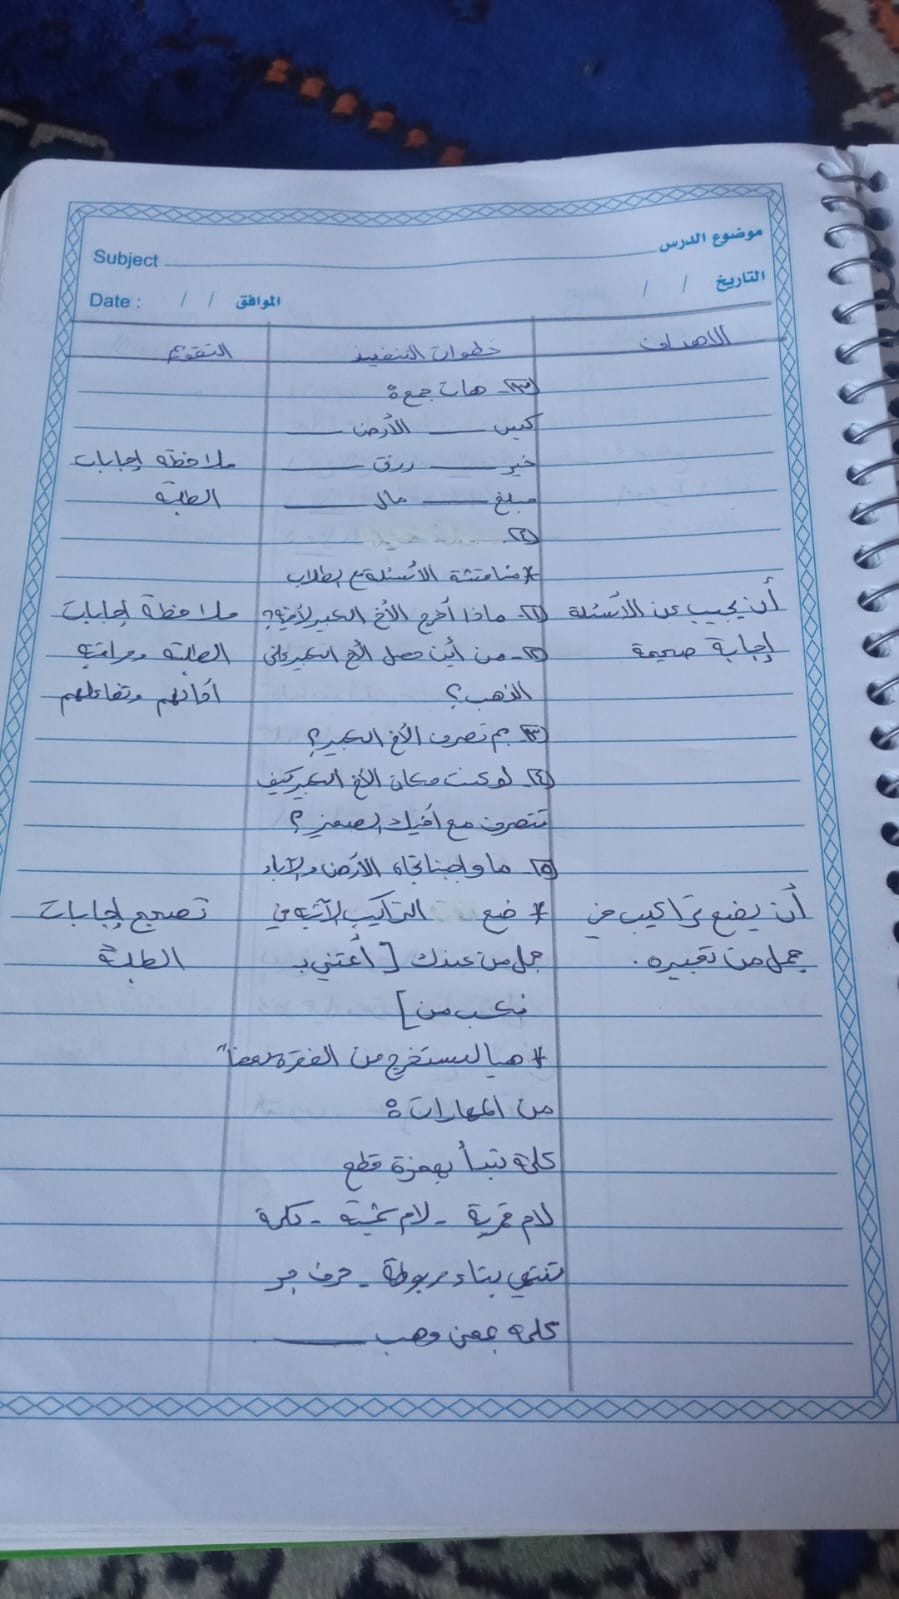 موضوع الدرس Subject
التاريخ / / الموافق / / Date :
الأهداف خطوات التنفيذ التقويم
٣- هات جمع:
كيس الأرض
خير رزق ملاحظة إجابات
مبلغ مال الطلبة
٤-
* مناقشة الأسئلة مع الطلاب
أن يجيب عن الأسئلة ١- ماذا أخرج الأخ الكبير لأخيه؟ ملاحظة إجابات
إجابة صحيحة ٢- من أين حصل الأخ الكبير على الطلبة ومراقبة
الذهب؟ أدائهم وتفاعلهم
٣- بم تصرف الأخ الكبير؟
٤- لو كنت مكان الأخ الكبير كيف
تتصرف مع أخيك الصغير؟
٥- ما واجبنا تجاه الأرض والآباء
أن يضع تراكيب في * ضع التراكيب الآتية في تصحيح إجابات
جمل من تعبيره. جمل من عندك [ أعتني بـ الطلبة
نكسب من ]
* هيا لنستخرج من الفقرة بعضاً
من المهارات:
كلمة تبدأ بهمزة قطع
لام قمرية - لام شمسية - كلمة
تنتهي بتاء مربوطة - حرف جر
كلمة بمعنى وهب